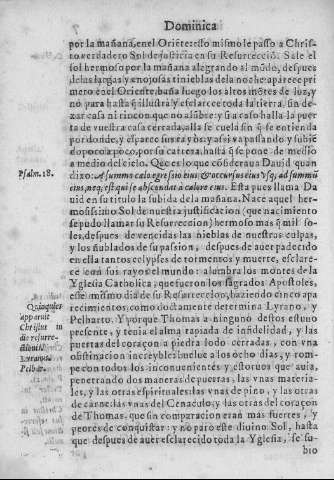 Dominica
por la mañana, en el Oriẽte: esso mismo le passo a Chris-
to verdadero Sol de justicia en su Resurrecciõ. Sale el
sol hermoso por la mañana alegrando al mũdo, despues
de las largas y enojosas tinieblas de la noche aparece pri
mero en el Oriente, baña luego los altos mõtes de luz, y
no para hasta q̃ illustra y esclarece toda la tierra, sin de-
xar casa ni rincon que no alũbre: y si a caso halla la puer
ta de vuestra casa cerrada, alli se cuela sin q̃ se entienda
por donde, y esparce sus rayos: y assi va passando y subiẽ
do poco a poco, por su carrera, hasta q̃ se pone de medio
a medio del cielo. Que es lo que cõsideraua Dauid quan
Psalm. 18.
dixo: A summo cælo egressio eius & occursus eius usq; ad summũ
eius, neq; est qui se abscondat à calore eius. Esta pues llama Da
uid en su titulo la subida de la mañana. Nace aquel her-
mosissimo Sol de nuestra justificacion (que nacimiento
se pudo llamar su Resurreccion) hermoso mas q̃ mil so-
les, despues de vencidas las nieblas de nuestras culpas,
y los ñublados de su passion, despues de auer padecido
en ella tantos eclypses de tormentos y muerte, esclare-
ce con sus rayos el mundo: alumbra los montes de la
Yglesia Catholica, que fueron los sagrados Apostoles,
este mismo dia de su Resurreccion, haziendo cinco apa
Quinquies
apparuit
Christus in
die resurre-
ctionis.
Lyranus.
Pelbar.
recimientos, como doctamente determina Lyrano, y
Pelbarto. Y porque Thomas a ninguno destos estuuo
presente, y tenia el alma tapiada de infidelidad, y las
puertas del coraçon a piedra lodo cerradas, con vna
obstinacion increyble: buelue a los ocho dias, y rom-
pe con todos los inconuenientes y estoruos que auia,
penetrando dos maneras de puertas, las vnas materia-
les, y las otras espirituales: las vnas de pino, y las otras
de carne: las vnas del Cenaculo, y las otras del coraçon
de Thomas, que sin comparacion eran mas fuertes, y
peores de conquistar: y no paro este diuino Sol, hasta
que despues de auer esclarecido toda la Yglesia, se su-
bio